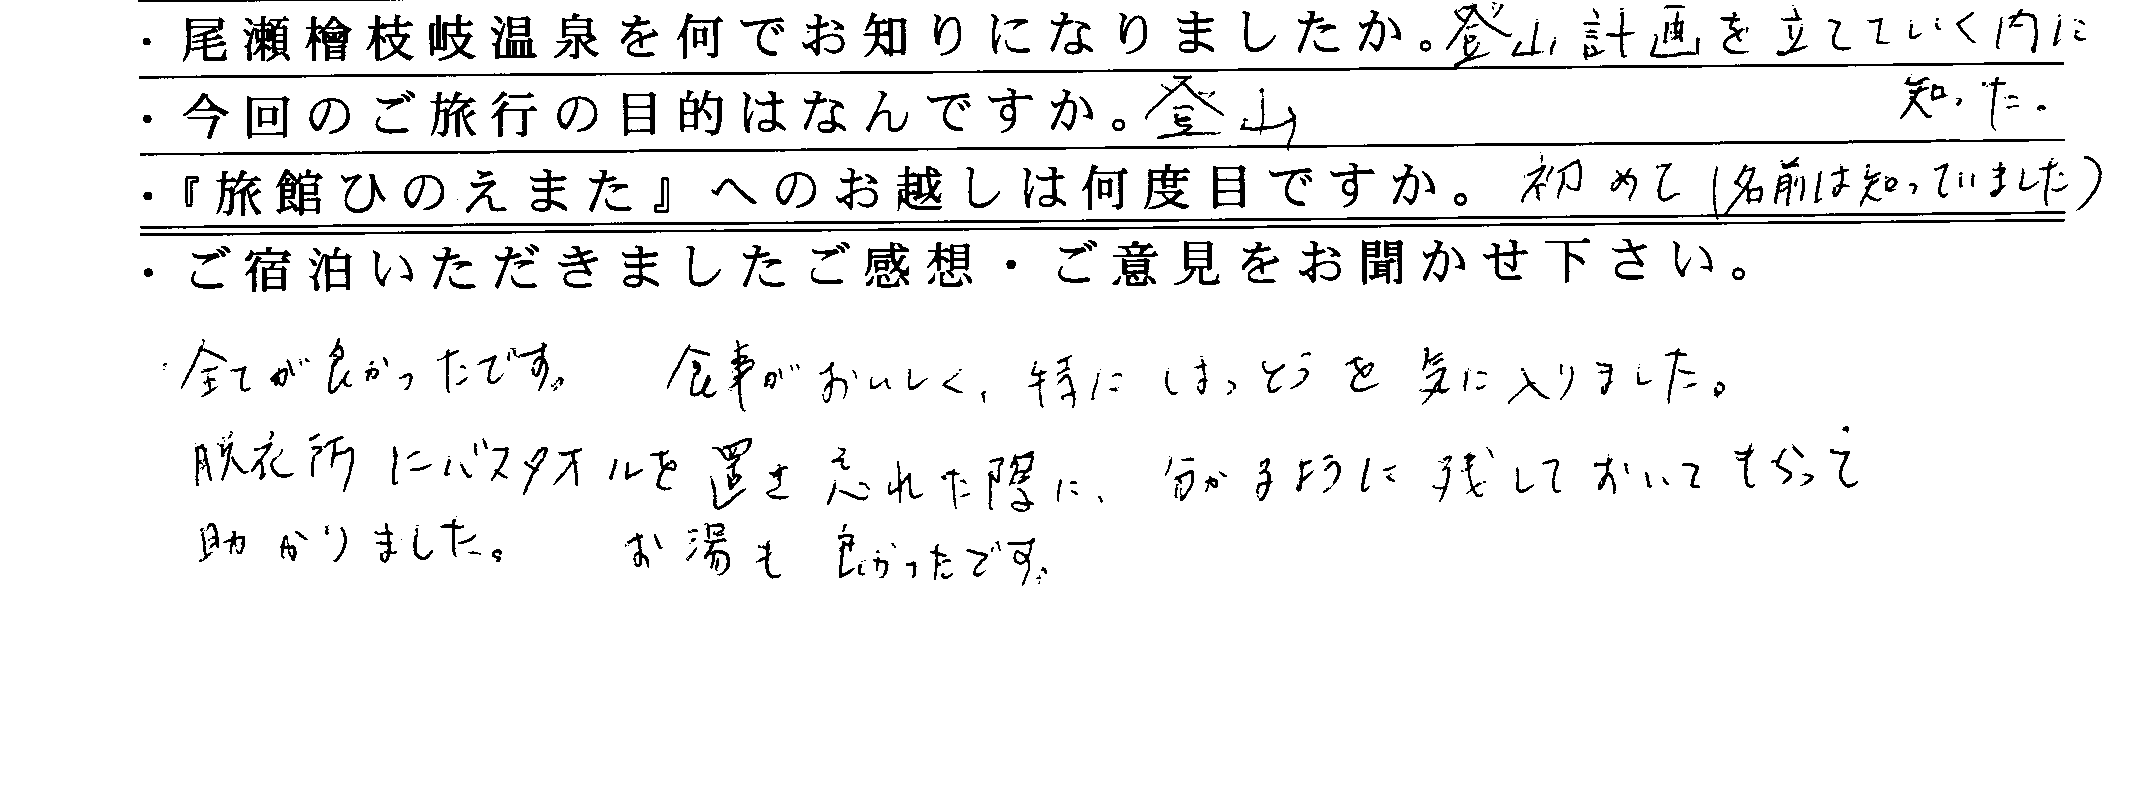 ・尾瀬檜枝岐温泉を何でお知りになりましたか。登山計画を立てていく内に
知った。
・今回のご旅行の目的はなんですか。登山
・『旅館ひのえまた』へのお越しは何度目ですか。初めて(名前は知っていました)
・ご宿泊いただきましたご感想・ご意見をお聞かせ下さい。
・全てが良かったです。 食事がおいしく、特にはっとうを気に入りました。
脱衣所にバスタオルを置き忘れた際に、分かるように残しておいてもらって
助かりました。 お湯も良かったです。